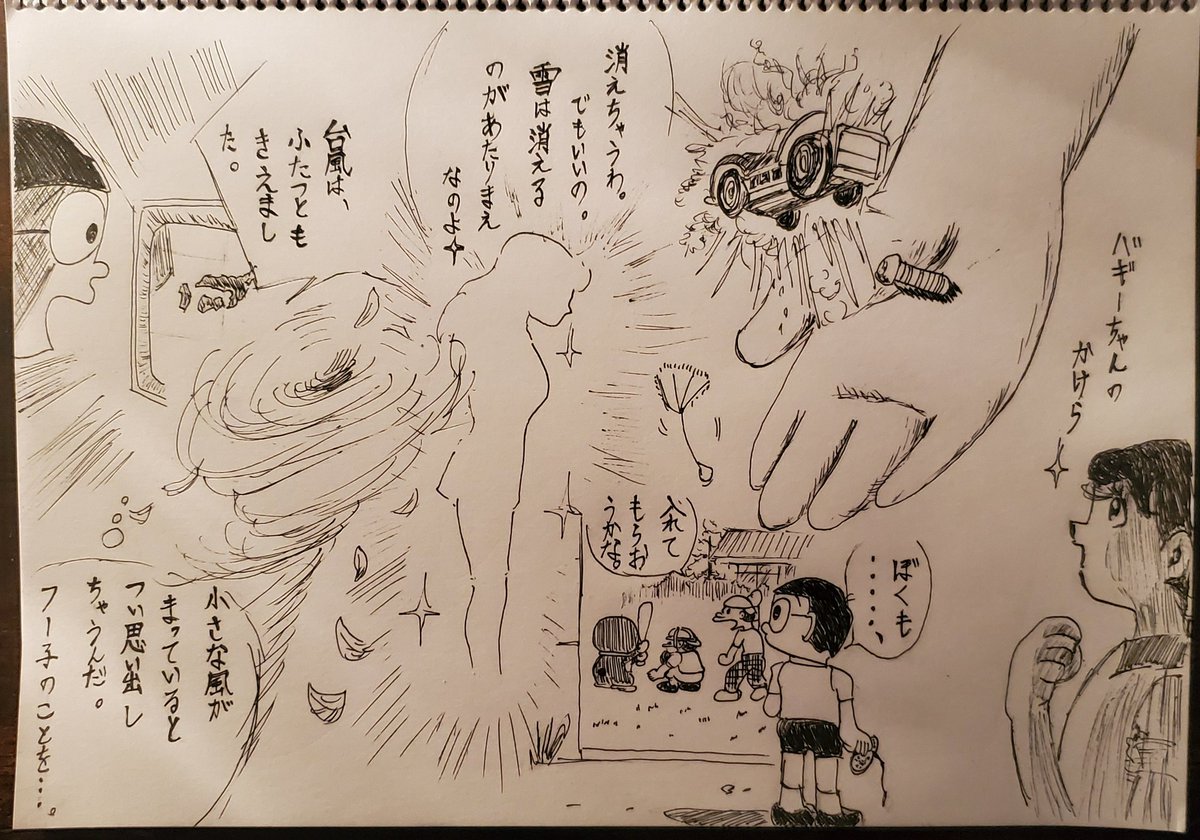 バギーちゃんの
かけら
消えちゃうわ。
でもいいの。
雪は消える
のがあたりまえ
なのよ
台風は、
ふたつとも
きえまし
た。
ぼくも
・・・・・、
入れて
もらお
うかな。
小さな風が
まっていると
つい思い出し
ちゃうんだ。
フー子のことを…。